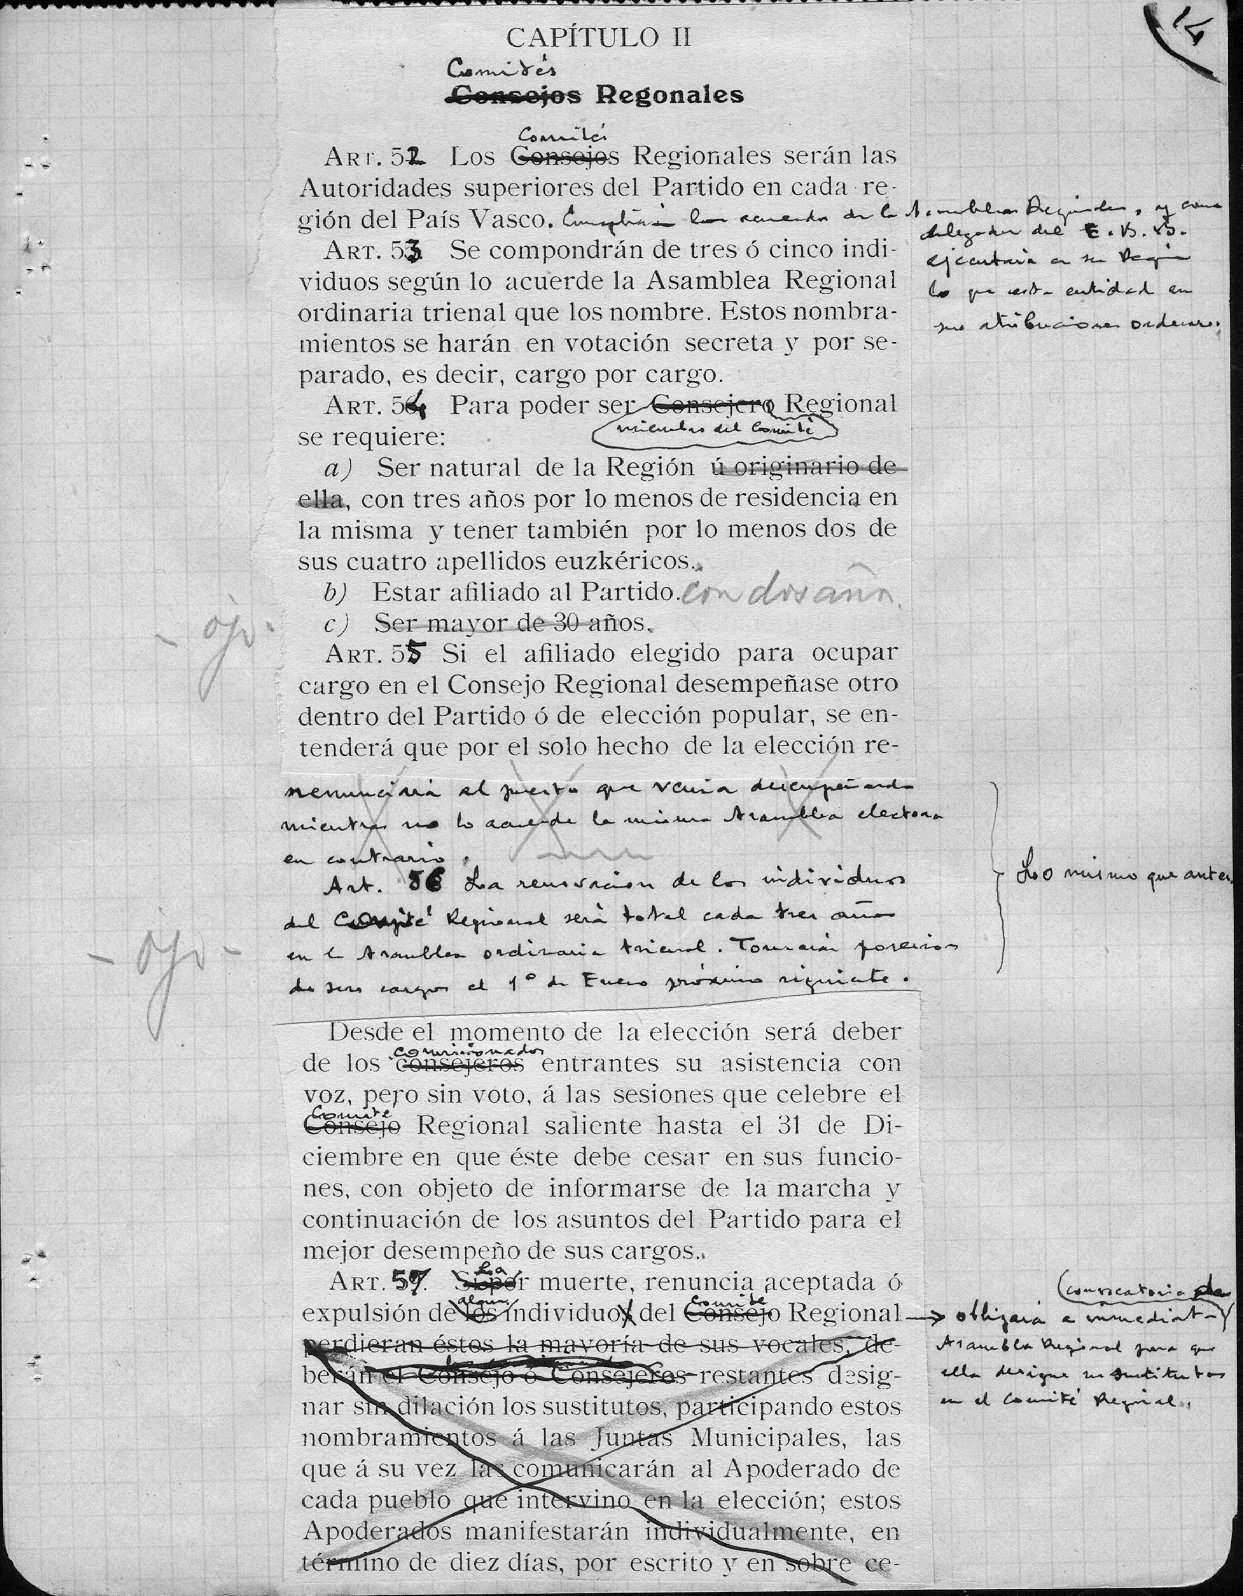 14
CAPÍTULO II
Comités
Consejos Regonales
Comités
ART. 52 Los Consejos Regionales serán las
Autoridades superiores del Partido en cada re-
gión del País Vasco. Cumplirán los acuerdos de la Asamblea Regional, y como
delegados del E. B. B.
ejecutará en su Región
lo que esta entidad en
sus atribuciones ordenare.
ART. 53 Se compondrán de tres ó cinco indi-
viduos según lo acuerde la Asamblea Regional
ordinaria trienal que los nombre. Estos nombra-
mientos se harán en votación secreta y por se-
parado, es decir, cargo por cargo.
ART. 54 Para poder ser Consejero Regional
miembro del Comité
se requiere:
a) Ser natural de la Región ú originario de
ella, con tres años por lo menos de residencia en
la misma y tener también por lo menos dos de
sus cuatro apellidos euzkéricos.
b) Estar afiliado al Partido. con dos años.
c) Ser mayor de 30 años.
- ojo -
ART. 55 Si el afiliado elegido para ocupar
cargo en el Consejo Regional desempeñase otro
dentro del Partido ó de elección popular, se en-
tenderá que por el solo hecho de la elección re-
renunciará al puesto que venía desempeñando
mientras no lo acuerde la misma Asamblea electora
en contrario.
Art. 56 La renovación de los individuos
del Comité Regional será total cada tres años
en la Asamblea ordinaria trienal. Tomarán posesión
de sus cargos el 1º de Enero próximo siguiente.
Lo mismo que antes
- ojo -
Desde el momento de la elección será deber
comisionados
de los consejeros entrantes su asistencia con
voz, pero sin voto, á las sesiones que celebre el
Comité
Consejo Regional saliente hasta el 31 de Di-
ciembre en que éste debe cesar en sus funcio-
nes, con objeto de informarse de la marcha y
continuación de los asuntos del Partido para el
mejor desempeño de sus cargos.
La
ART. 57. Si por muerte, renuncia aceptada ó
algún Comité
expulsión de los individuos del Consejo Regional
(convocatoria de
→ obligará a inmediata
Asamblea Regional para que
ella designe sustitutos
en el Comité Regional.
perdieran éstos la mayoría de sus vocales, de-
berán el Consejo ó Consejeros restantes desig-
nar sin dilación los sustitutos, participando estos
nombramientos á las Juntas Municipales, las
que á su vez las comunicarán al Apoderado de
cada pueblo que intervino en la elección; estos
Apoderados manifestarán individualmente, en
término de diez días, por escrito y en sobre ce-